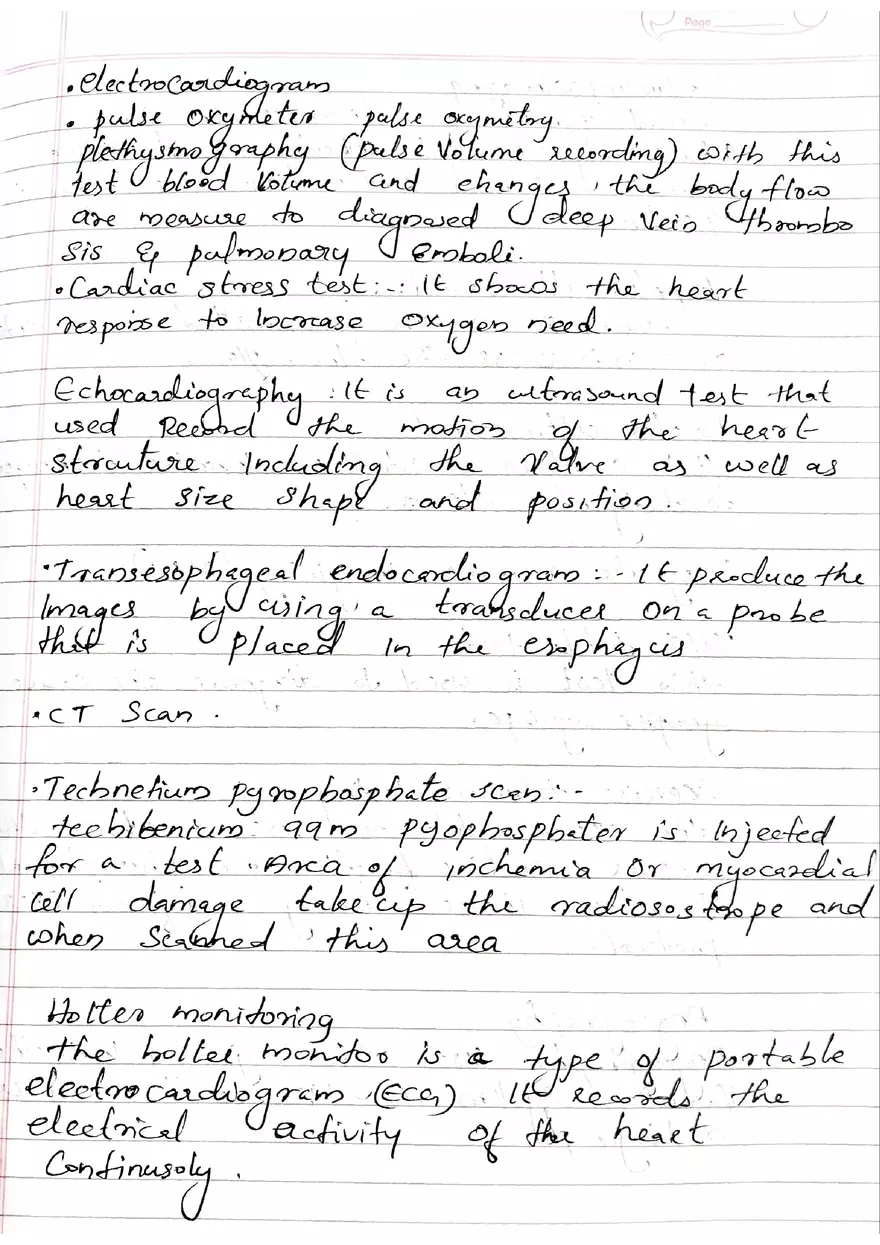 Page
• electrocardiogram
• pulse oxymeter pulse oxymetry
plethysmography (pulse volume recording) with this
test blood volume and changes, the body flow
are measure to diagnosed deep vein thrombo
sis & pulmonary Emboli.
• Cardiac stress test:-: It shows the heart
response to Increase oxygen need.
Echocardiography : It is an ultrasound test that
used Record the motion of the heart
struture Including the Valve as well as
heart size shape and position.
• Transesophageal endocardiogram : - It produce the
Images by using a transducer on a probe
that is placed In the esophagus
• CT Scan .
• Technetium pyrophosphate scan :-
99m pyophosphater is Injected
for a test . Area of inchemia Or myocardial
cell damage take up the and
when Scanned this area
Holter monitoring
the holter monitor is a type of portable
electrocardiogram (ECG) . It records the
electrical activity of the heart
Continusoly .